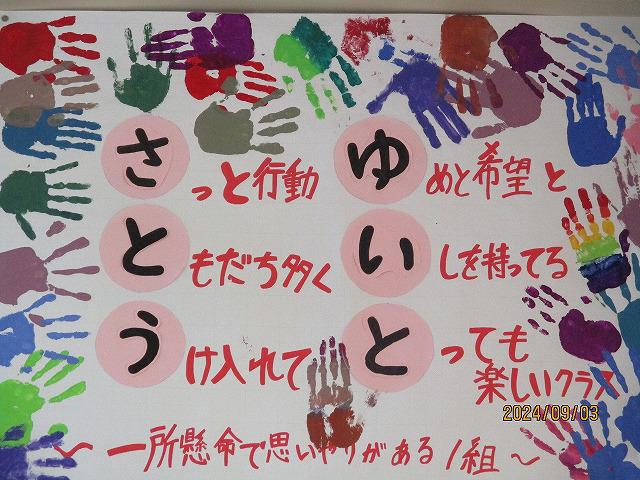 さっと行動
ともだち多く
うけ入れて
ゆめと希望と
いしを持ってる
とっても
楽しいクラス
2024/09/03
～一所懸命で思いやりがある1組～